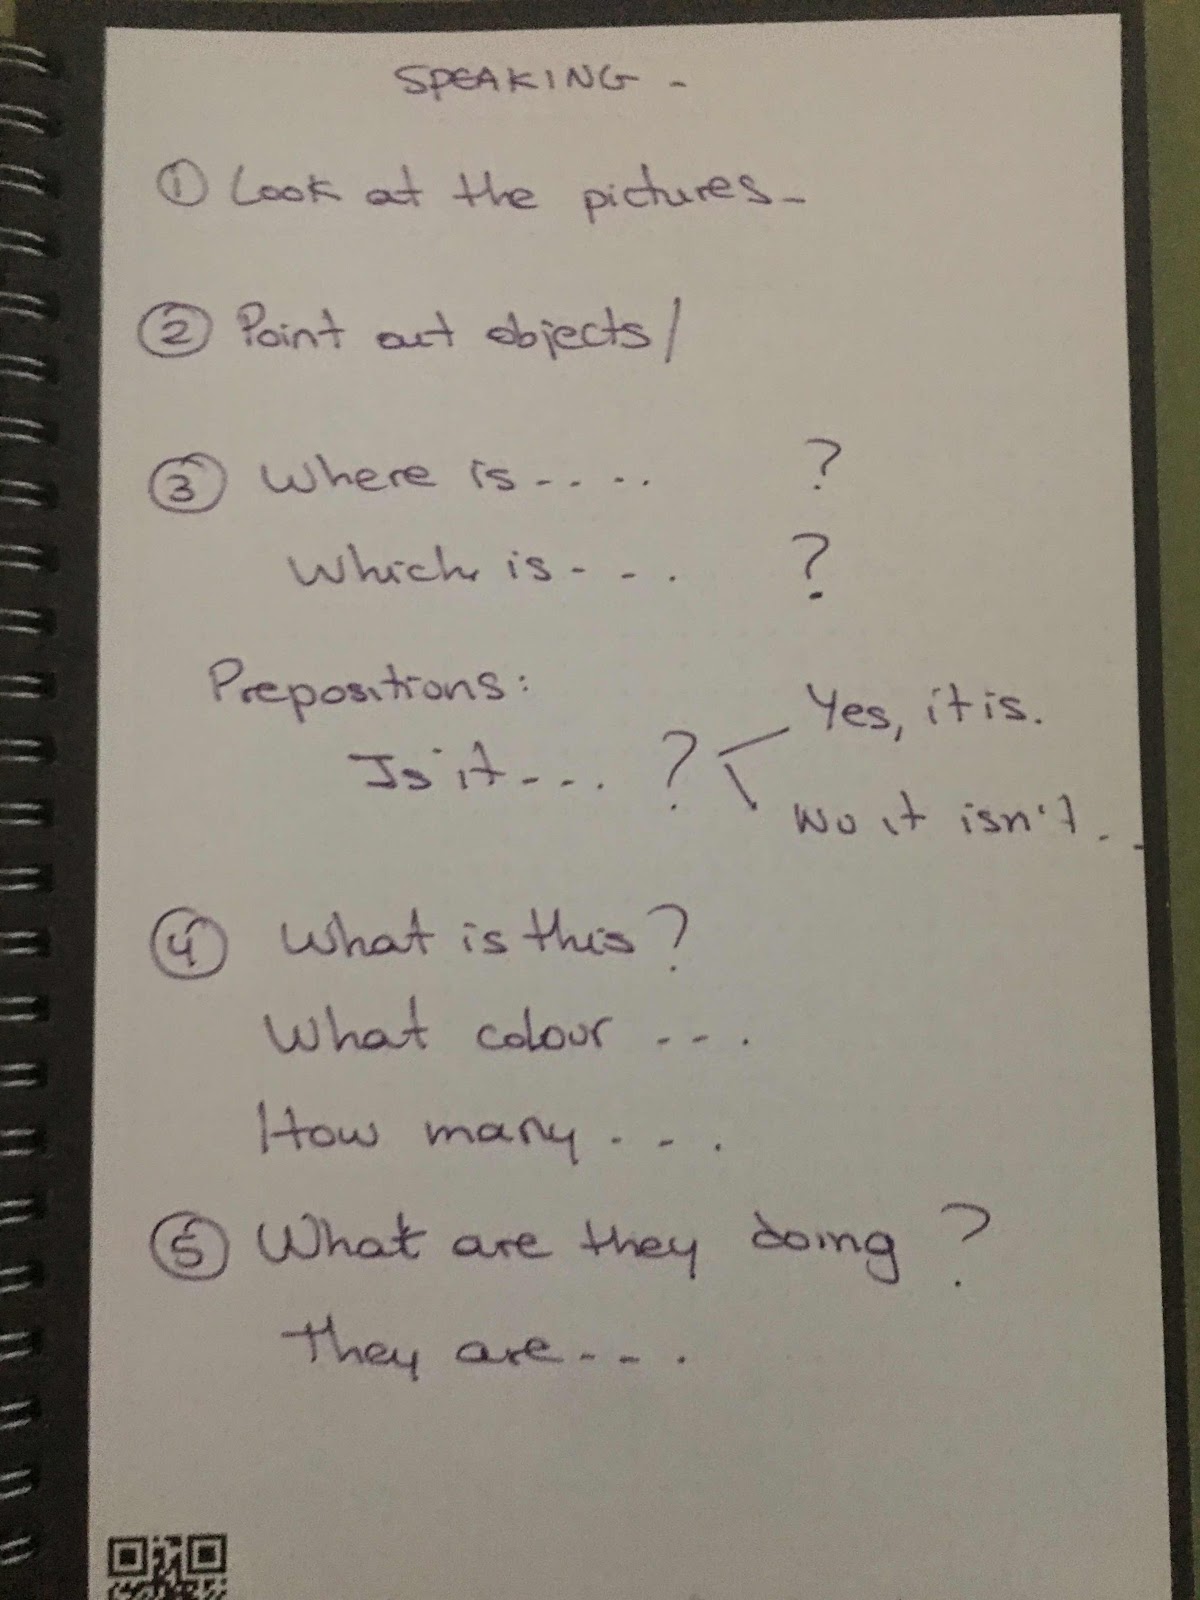 SPEAKING -
① Look at the pictures -
② Point out objects/
③ Where is - - . . ?
Which is - - . ?
Prepositions:
Is it - - . ?
Yes, it is.
No it isn't . -
④ What is this?
What colour - - .
How many - - .
⑤ What are they doing ?
They are - - .